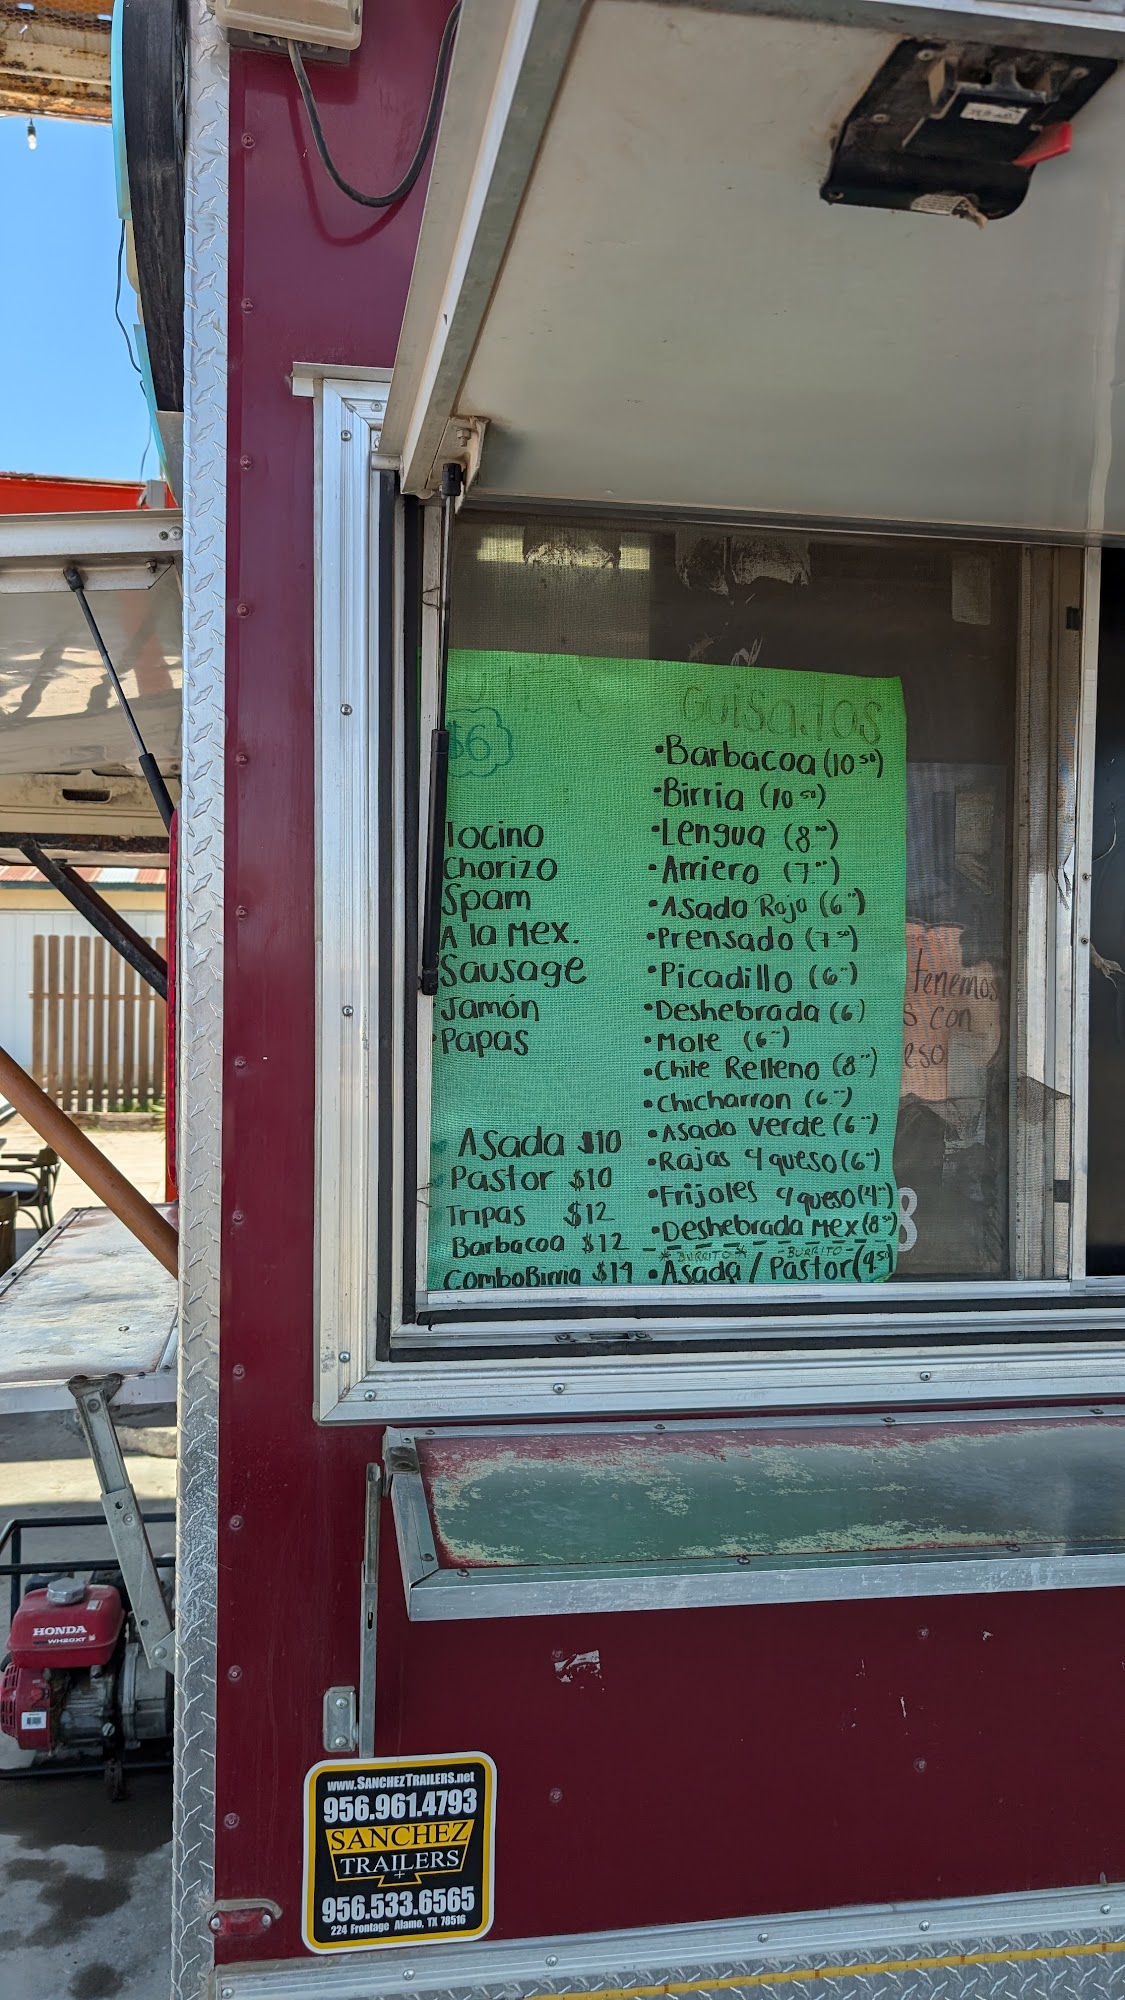 $6
Tocino
Chorizo
Spam
A la Mex.
Sausage
Jamón
•Papas
Asada $10
Pastor $10
Tripas $12
Barbacoa $12
ComboBirria $14
Guisados
•Barbacoa (10 50)
•Birria (10 50)
•Lengua (8 00)
•Arriero (7 00)
•Asado Rojo (6 00)
•Prensado (7 50)
•Picadillo (6 00)
•Deshebrada (6)
•Mole (6 00)
•Chile Relleno (8 00)
•Chicharron (6 00)
•Asado Verde (6 00)
•Rajas y queso (6 00)
•Frijoles y queso (4 00)
•Deshebrada Mex (8 00)
*BURRITO* -BURRITO-
•Asada / Pastor (9 50)
tenemos
s con
eso
8
HONDA
WH20XT
www.SANCHEZTRAILERS.net
956.961.4793
SANCHEZ
TRAILERS
956.533.6565
224 Frontage Alamo, TX 78516